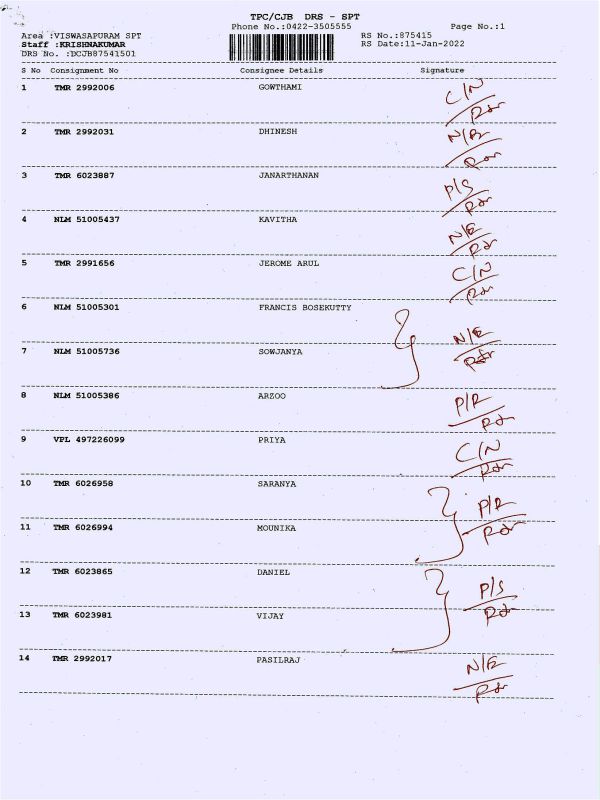 TPC/CJB DRS - SPT
Phone No.:0422-3505555 Page No.:1
Area :VISWASAPURAM SPT RS No.:875415
Staff :KRISHNAKUMAR RS Date:11-Jan-2022
DRS No. :DCJB87541501
S No Consignment No Consignee Details Signature
1 TMR 2992006 GOWTHAMI C/N
2 TMR 2992031 DHINESH
3 TMR 6023887 JANARTHANAN P/S
4 NLM 51005437 KAVITHA
5 TMR 2991656 JEROME ARUL C/N
6 NLM 51005301 FRANCIS BOSEKUTTY
7 NLM 51005736 SOWJANYA
8 NLM 51005386 ARZOO P/R
9 VPL 497226099 PRIYA C/N
10 TMR 6026958 SARANYA P/R
11 TMR 6026994 MOUNIKA
12 TMR 6023865 DANIEL P/S
13 TMR 6023981 VIJAY
14 TMR 2992017 PASILRAJ